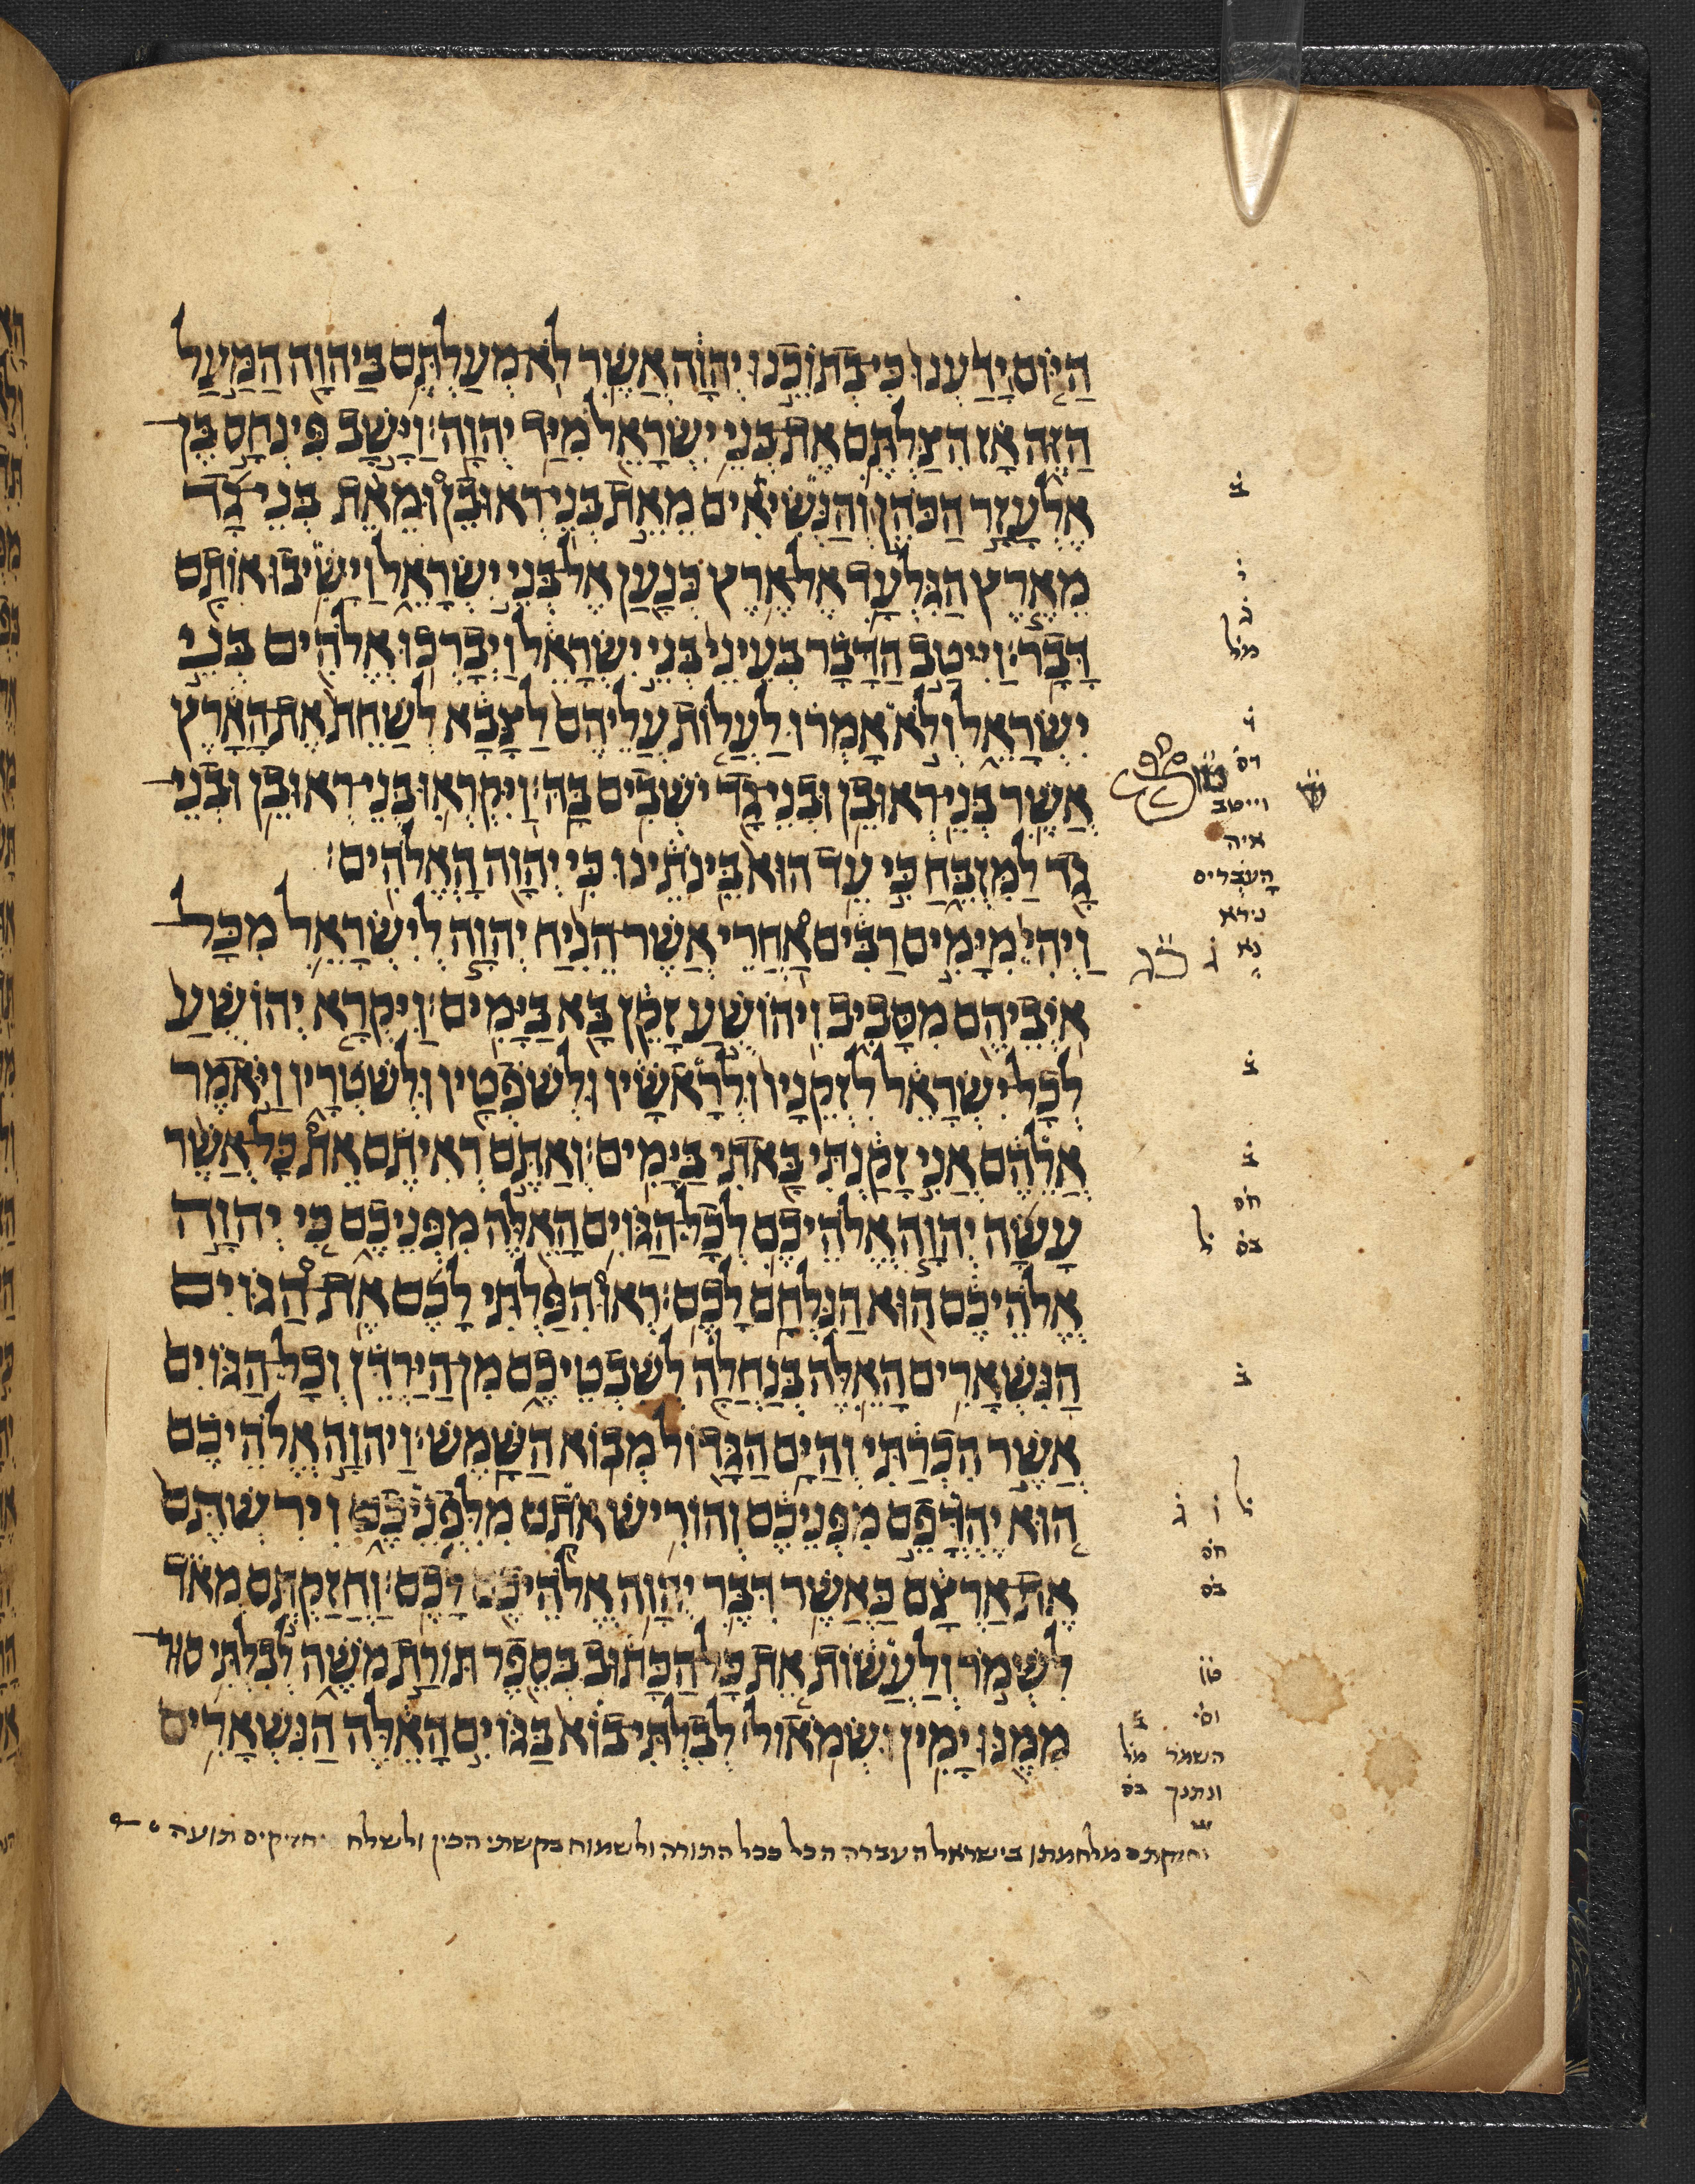 הַיּוֹם יָדַעְנוּ כִּי בְתוֹכֵנוּ יְהוָה אֲשֶׁר לֹא מְעַלְתֶּם בַּיהוָה הַמַּעַל
הַזֶּה אָז הִצַּלְתֶּם אֶת בְּנֵי יִשְׂרָאֵל מִיַּד יְהוָה׃ וַיָּשָׁב פִּינְחָס בֶּן
אֶלְעָזָר הַכֹּהֵן וְהַנְּשִׂיאִים מֵאֵת בְּנֵי רְאוּבֵן וּמֵאֵת בְּנֵי גָד
מֵאֶרֶץ הַגִּלְעָד אֶל אֶרֶץ כְּנַעַן אֶל בְּנֵי יִשְׂרָאֵל וַיָּשִׁיבוּ אוֹתָם
דָּבָר׃ וַיִּיטַב הַדָּבָר בְּעֵינֵי בְּנֵי יִשְׂרָאֵל וַיְבָרְכוּ אֱלֹהִים בְּנֵי
יִשְׂרָאֵל וְלֹא אָמְרוּ לַעֲלוֹת עֲלֵיהֶם לַצָּבָא לְשַׁחֵת אֶת הָאָרֶץ
אֲשֶׁר בְּנֵי רְאוּבֵן וּבְנֵי גָד יֹשְׁבִים בָּהּ׃ וַיִּקְרְאוּ בְּנֵי רְאוּבֵן וּבְנֵי
גָד לַמִּזְבֵּחַ כִּי עֵד הוּא בֵּינֹתֵינוּ כִּי יְהוָה הָאֱלֹהִים׃
וַיְהִי מִיָּמִים רַבִּים אַחֲרֵי אֲשֶׁר הֵנִיחַ יְהוָה לְיִשְׂרָאֵל מִכָּל
אֹיְבֵיהֶם מִסָּבִיב וִיהוֹשֻׁעַ זָקֵן בָּא בַּיָּמִים׃ וַיִּקְרָא יְהוֹשֻׁעַ
לְכָל יִשְׂרָאֵל לִזְקֵנָיו וּלְרָאשָׁיו וּלְשֹׁפְטָיו וּלְשֹׁטְרָיו וַיֹּאמֶר
אֲלֵהֶם אֲנִי זָקַנְתִּי בָּאתִי בַּיָּמִים׃ וְאַתֶּם רְאִיתֶם אֵת כָּל אֲשֶׁר
עָשָׂה יְהוָה אֱלֹהֵיכֶם לְכָל הַגּוֹיִם הָאֵלֶּה מִפְּנֵיכֶם כִּי יְהוָה
אֱלֹהֵיכֶם הוּא הַנִּלְחָם לָכֶם׃ רְאוּ הִפַּלְתִּי לָכֶם אֶת הַגּוֹיִם
הַנִּשְׁאָרִים הָאֵלֶּה בְּנַחֲלָה לְשִׁבְטֵיכֶם מִן הַיַּרְדֵּן וְכָל הַגּוֹיִם
אֲשֶׁר הִכְרַתִּי וְהַיָּם הַגָּדוֹל מְבוֹא הַשָּׁמֶשׁ׃ וַיהוָה אֱלֹהֵיכֶם
הוּא יֶהְדֳּפֵם מִפְּנֵיכֶם וְהוֹרִישׁ אֹתָם מִלִּפְנֵיכֶם וִירִשְׁתֶּם
אֶת אַרְצָם כַּאֲשֶׁר דִּבֶּר יְהוָה אֱלֹהֵיכֶם לָכֶם׃ וַחֲזַקְתֶּם מְאֹד
לִשְׁמֹר וְלַעֲשׂוֹת אֵת כָּל הַכָּתוּב בְּסֵפֶר תּוֹרַת מֹשֶׁה לְבִלְתִּי סוּר
מִמֶּנּוּ יָמִין וּשְׂמֹאול׃ לְבִלְתִּי בוֹא בַּגּוֹיִם הָאֵלֶּה הַנִּשְׁאָרִים
ב
י
ג
מל
וייטב
איה
העברים
נירא
ב
ב
חס
בס ל
ב
ל
חס
בס
השמר מל
ונתנך בס
וחזקתם מלחמתו בישראל העברה הכל ככל התורה ולשמוח בקשתי הכין ולשלח